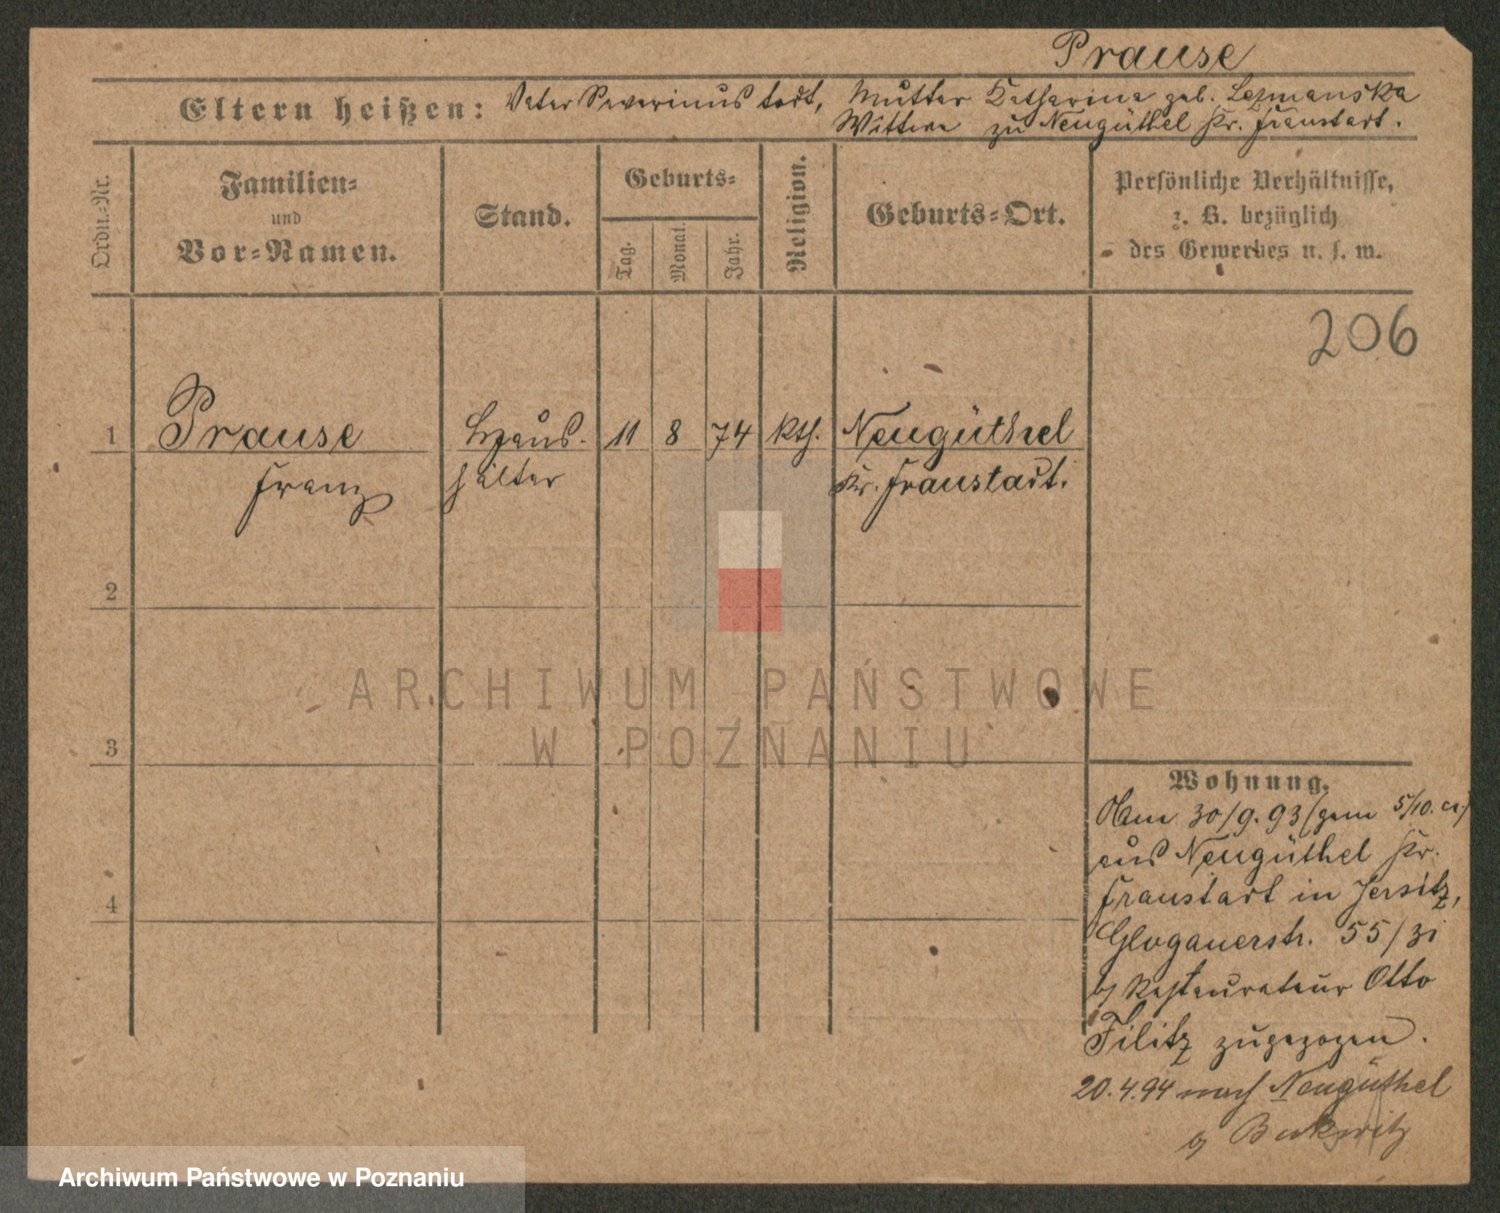 Prause
Eltern heißen: Vater Severinus todt, Mutter Katharina geb. Lezmanska
Wittwe zu Neugüthel Kr. Fraustadt.
Ordn.-Nr.
Familien-
und
Vor-Namen.
Stand.
Geburts-
Tag.
Monat.
Jahr.
Religion.
Geburts-Ort.
Persönliche Verhältnisse,
z. B. bezüglich
des Gewerbes u. s. w.
206
1 Prause Haus- 11 8 74 kth. Neugüthel
Franz hälter Kr. Fraustadt.
2
3
4
ARCHIWUM PAŃSTWOWE
W POZNANIU
Wohnung.
Am 30/9.93 (gem 5/10. cr)
aus Neugüthel Kr.
Fraustadt in Jersitz,
Glogauerstr. 55/31
b/ Restaurateur Otto
Filitz zugezogen.
20.4.94 nach Neugüthel
b/
Archiwum Państwowe w Poznaniu